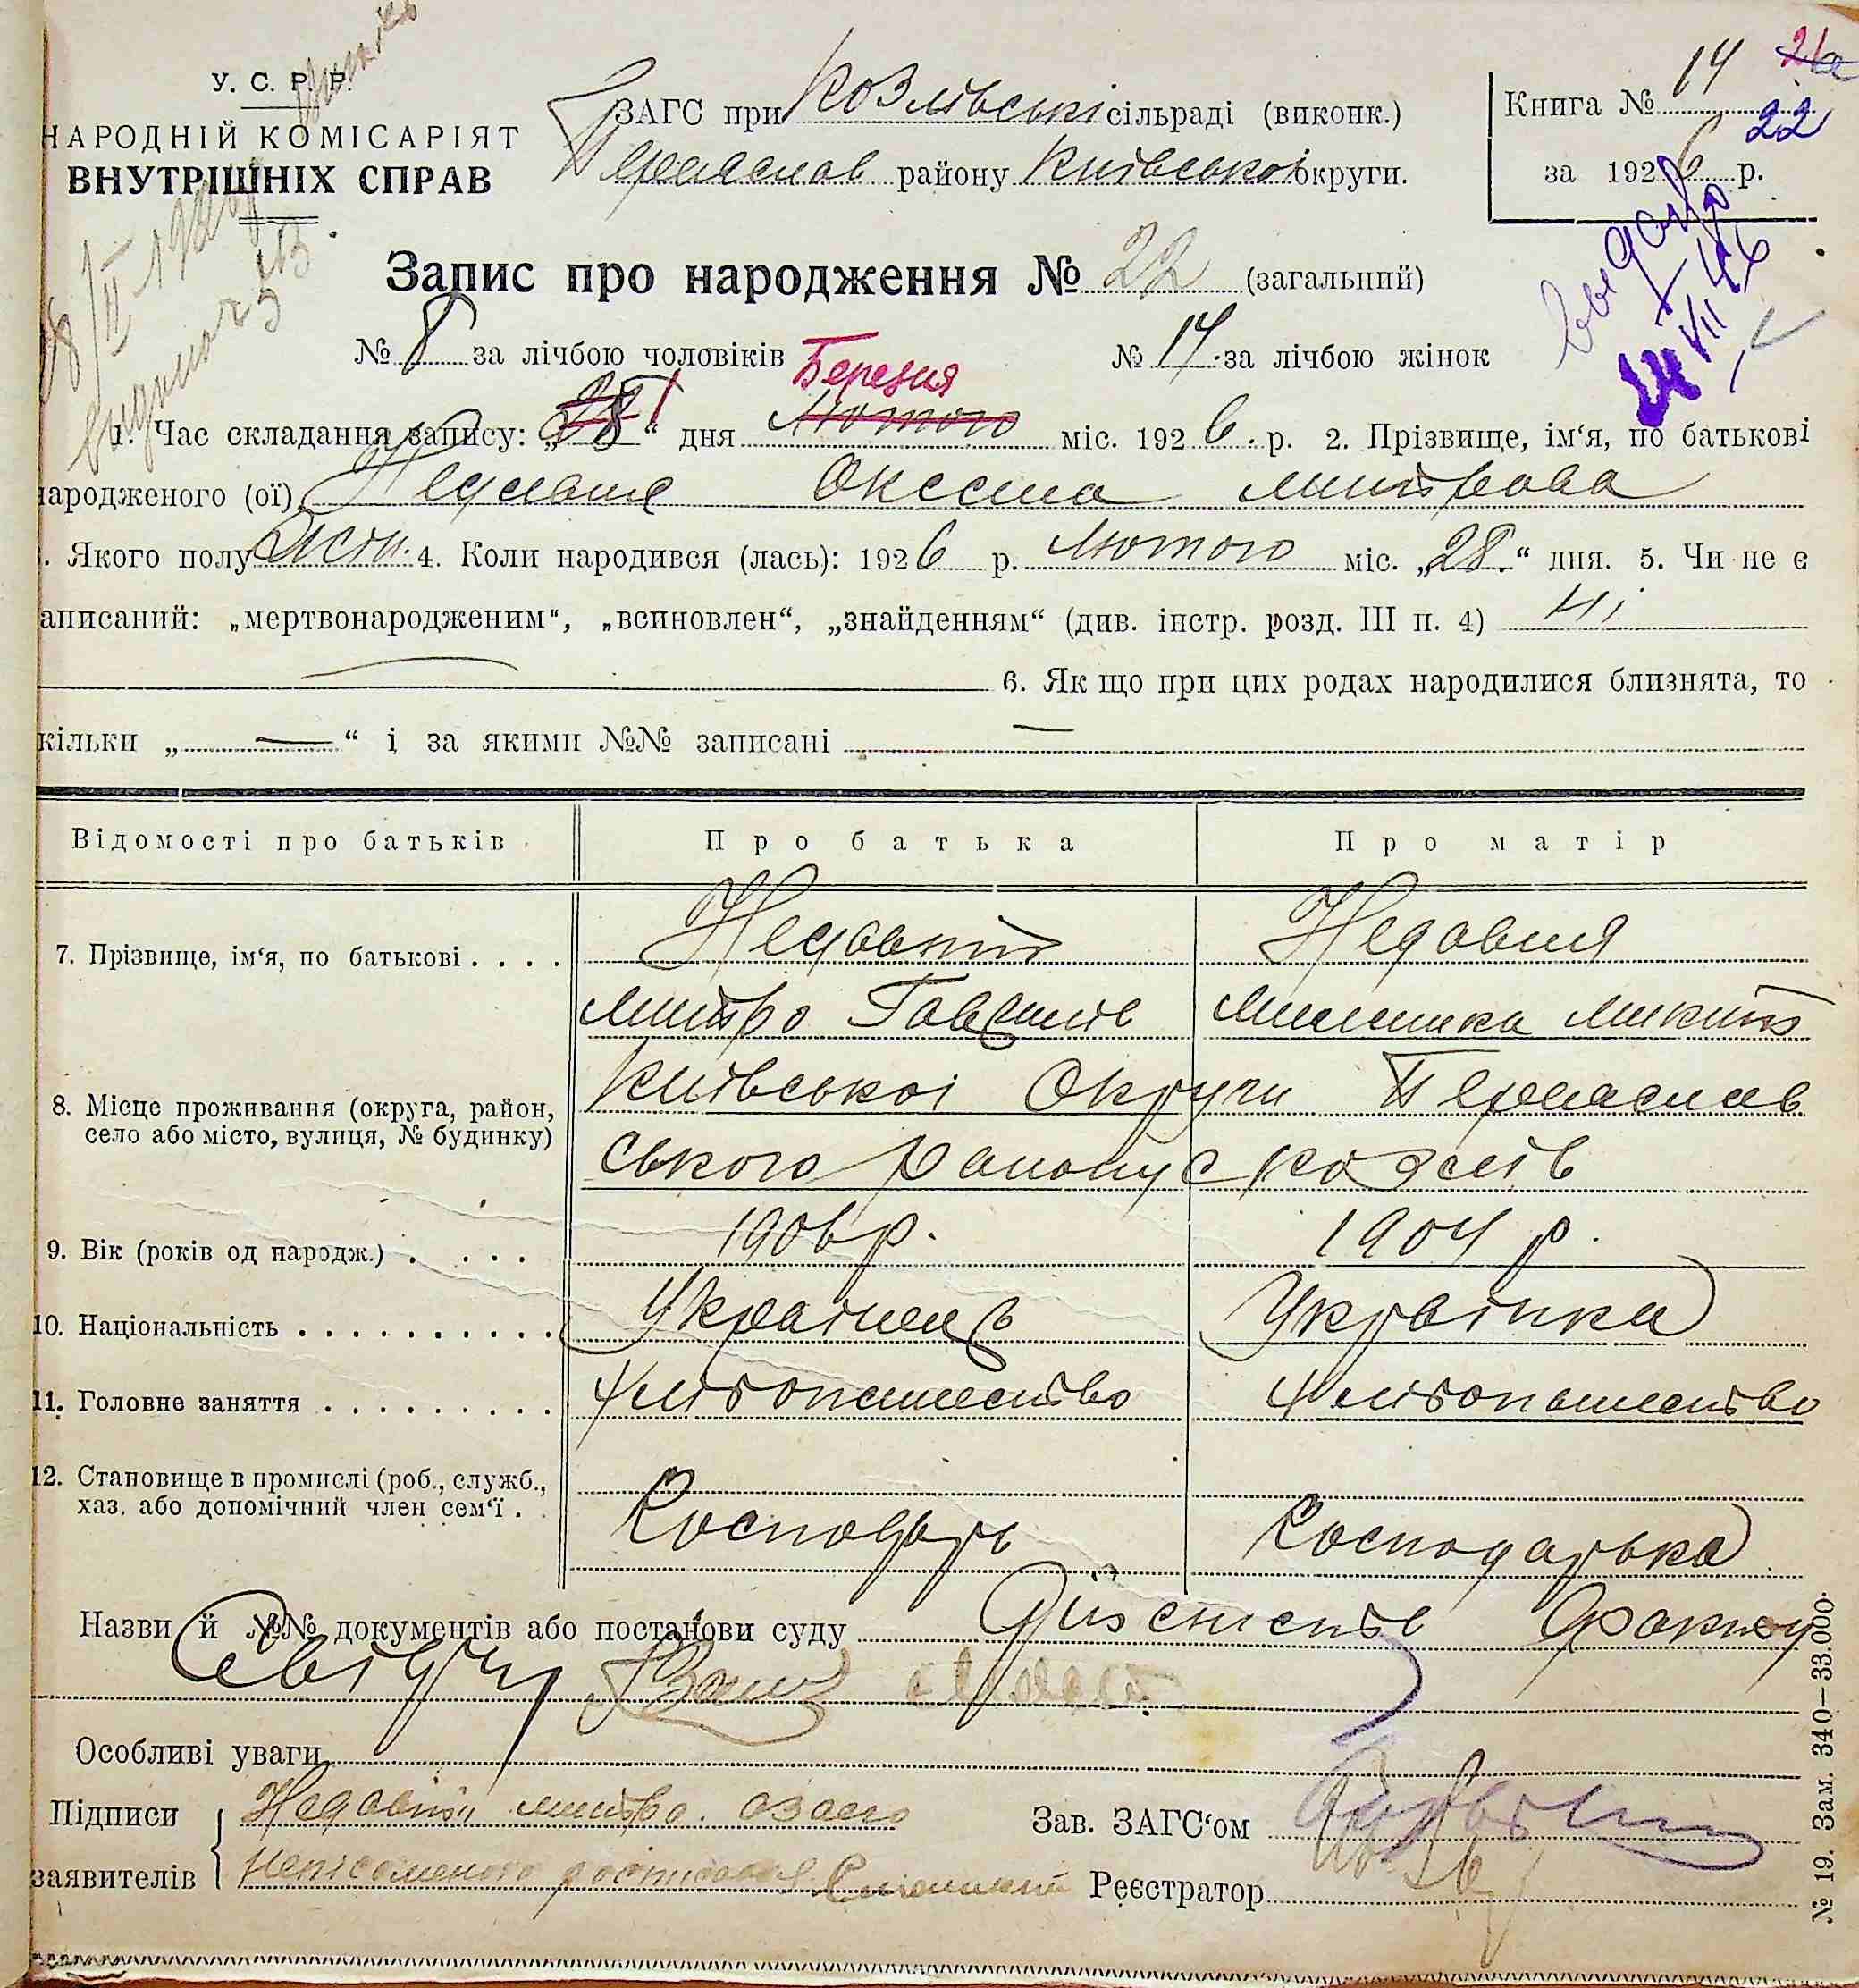 У. С. Р. Р.
НАРОДНІЙ КОМІСАРІЯТ
ВНУТРІШНІХ СПРАВ
ЗАГС при Козлівські сільраді (виконк.)
Переяслав району Київської округи.
Книга № 14
21а
22
за 1926 р.
Запис про народження № 22 (загальний)
№ 8 за лічбою чоловіків № 14 за лічбою жінок
Березня
1. Час складання запису: „28“ 1 дня Лютого міс. 1926. р. 2. Прізвище, ім‘я, по батькові
народженого (ої) Недавня Оксена митрова
. Якого полу Жсти. 4. Коли народився (лась): 1926 р. Лютого міс. „28.“ дня. 5. Чи не є
аписаний: „мертвонародженим“, „всиновлен“, „знайденням“ (див. інстр. розд. III п. 4) Ні
6. Як що при цих родах народилися близнята, то
кільки „ — “ і за якими №№ записані —
Відомості про батьків Про батька Про матір
7. Прізвище, ім‘я, по батькові . . . . Недавній Недавня
митро Гаврилів миланика микит
8. Місце проживання (округа, район, село або місто, вулиця, № будинку) Київськоі Округи Переяслав
ського Району с Козлів
9. Вік (років од народж.) . . . . . 1906 р. 1904 р.
10. Національність . . . . . . . . . . Українец Українка
11. Головне заняття . . . . . . . . . хлібопашество хлібопашество
12. Становище в промислі (роб., служб., хаз. або допомічний член сем‘ї . Господарь Господарька
Назви й №№ документів або постанови суду Дійсність факту
Свідчу
Особливі уваги
Підписи заявителів Недавній митро. азаего
неписьменого росписався
Зав. ЗАГС‘ом
Реєстратор
№ 19. Зам. 340—33.000.